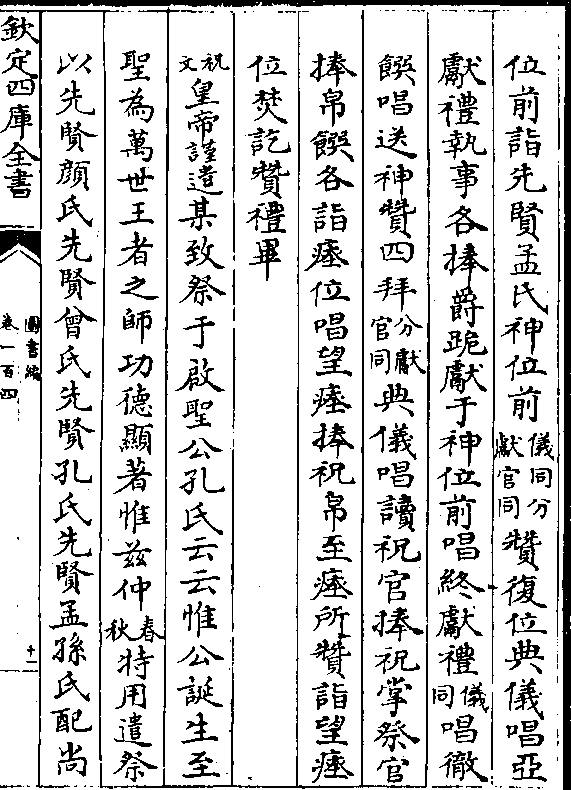 位前詣先賢孟氏神位前儀同分獻官同贊復位典儀唱亞
獻禮執事各捧爵跪獻于神位前唱終獻禮儀同唱徹
饌唱送神贊四拜分獻官同典儀唱讀祝官捧祝掌祭官
捧帛饌各詣瘞位唱望瘞捧祝帛至瘞所贊詣望瘞
位焚訖贊禮畢
祝文皇帝謹遣某致祭于啟聖公孔氏云云惟公誕生至
聖為萬世王者之師功德顯著惟兹仲春秋特用遣祭
以先賢顔氏先賢曾氏先賢孔氏先賢孟孫氏配尚
欽定四庫全書
圖書編
卷一百四
十一